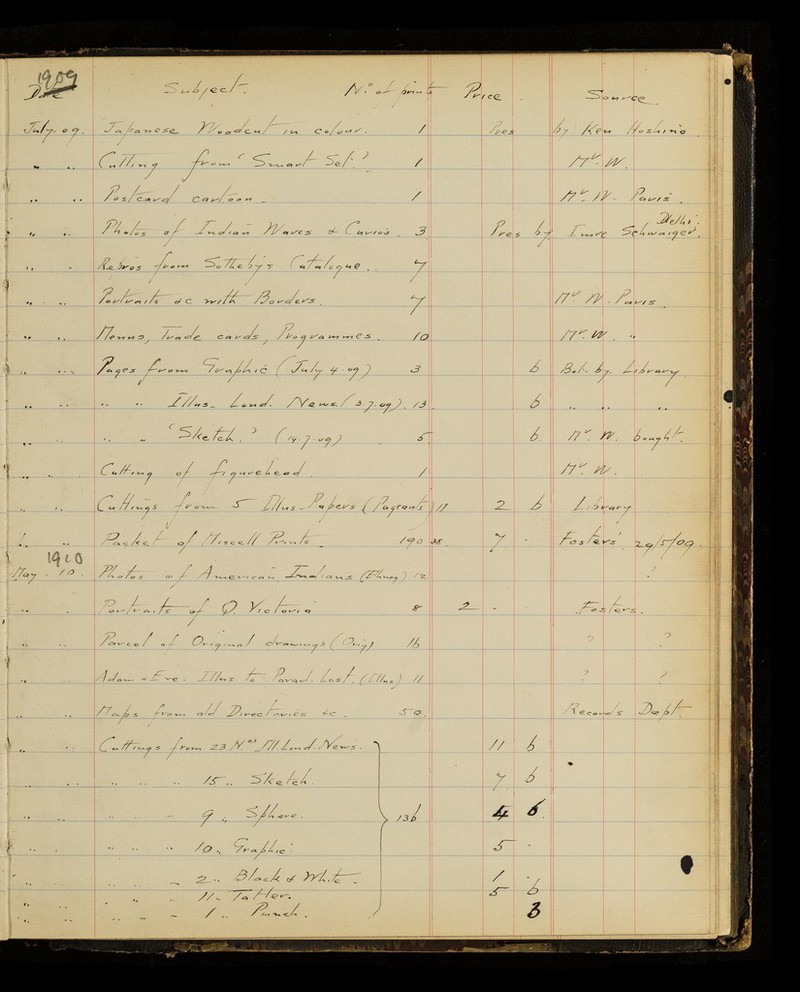 1909
Date Subject. No. of prints Price. Source
July. 09. Japanese Woodcut in colour. 1 Pres by Ken Hoshino.
" " Cutting from "Smart Set." 1 Mr. W.
" " Postcard cartoon. 1 Mr. W. Paris.
Delhi.
" " Photos of Indian Wares & Curios. 3 Pres by Imre Schwaiger.
" " Repros from Sotheby's Catalogue. 7
" " Portraits &c with Borders. 7 Mr W. Paris.
" " Menus, Trade cards, Programmes. 10 Mr. W. "
" " Pages from Graphic (July 4.09) 3 6 Bot. by. Library
" " " " Illus. Lond. News. (3.7.09). 13. 6 " " "
" " " " "Sketch." (14.7.09) 5 6 Mr. W. bought.
" " Cutting of figurehead. 1 Mr. W.
" " Cuttings from 5 Illus. Papers (Pageants) 11 2 6 Library
" " Packet of Miscell Prints. 190 7 - Fosters' 29/5/09.
1910
May. 10. Photos of American Indians (Ethnog) 12 ?
" " Portraits of Q. Victoria 8 2 - - Fosters.
" " Parcel of Original drawings (Orig) 16 ? ?
" " Adam & Eve. Illus to Parad. Lost. (Illus) 11 ? ?
" " Maps from old Directories &c. 50. Records Dept.
" " Cuttings from 23 Nos Ill. Lond. News. 11 6
" " " " " 15 " Sketch. 7 6
" " " " " 9 " Sphere. 136 4 6.
" " " " " 10 " Graphic. 5 -
" " " " " 2 " Black & White. 1 -
" " " " " 11 " Tatler. 5 6
" " " " " 1 " Punch. 3